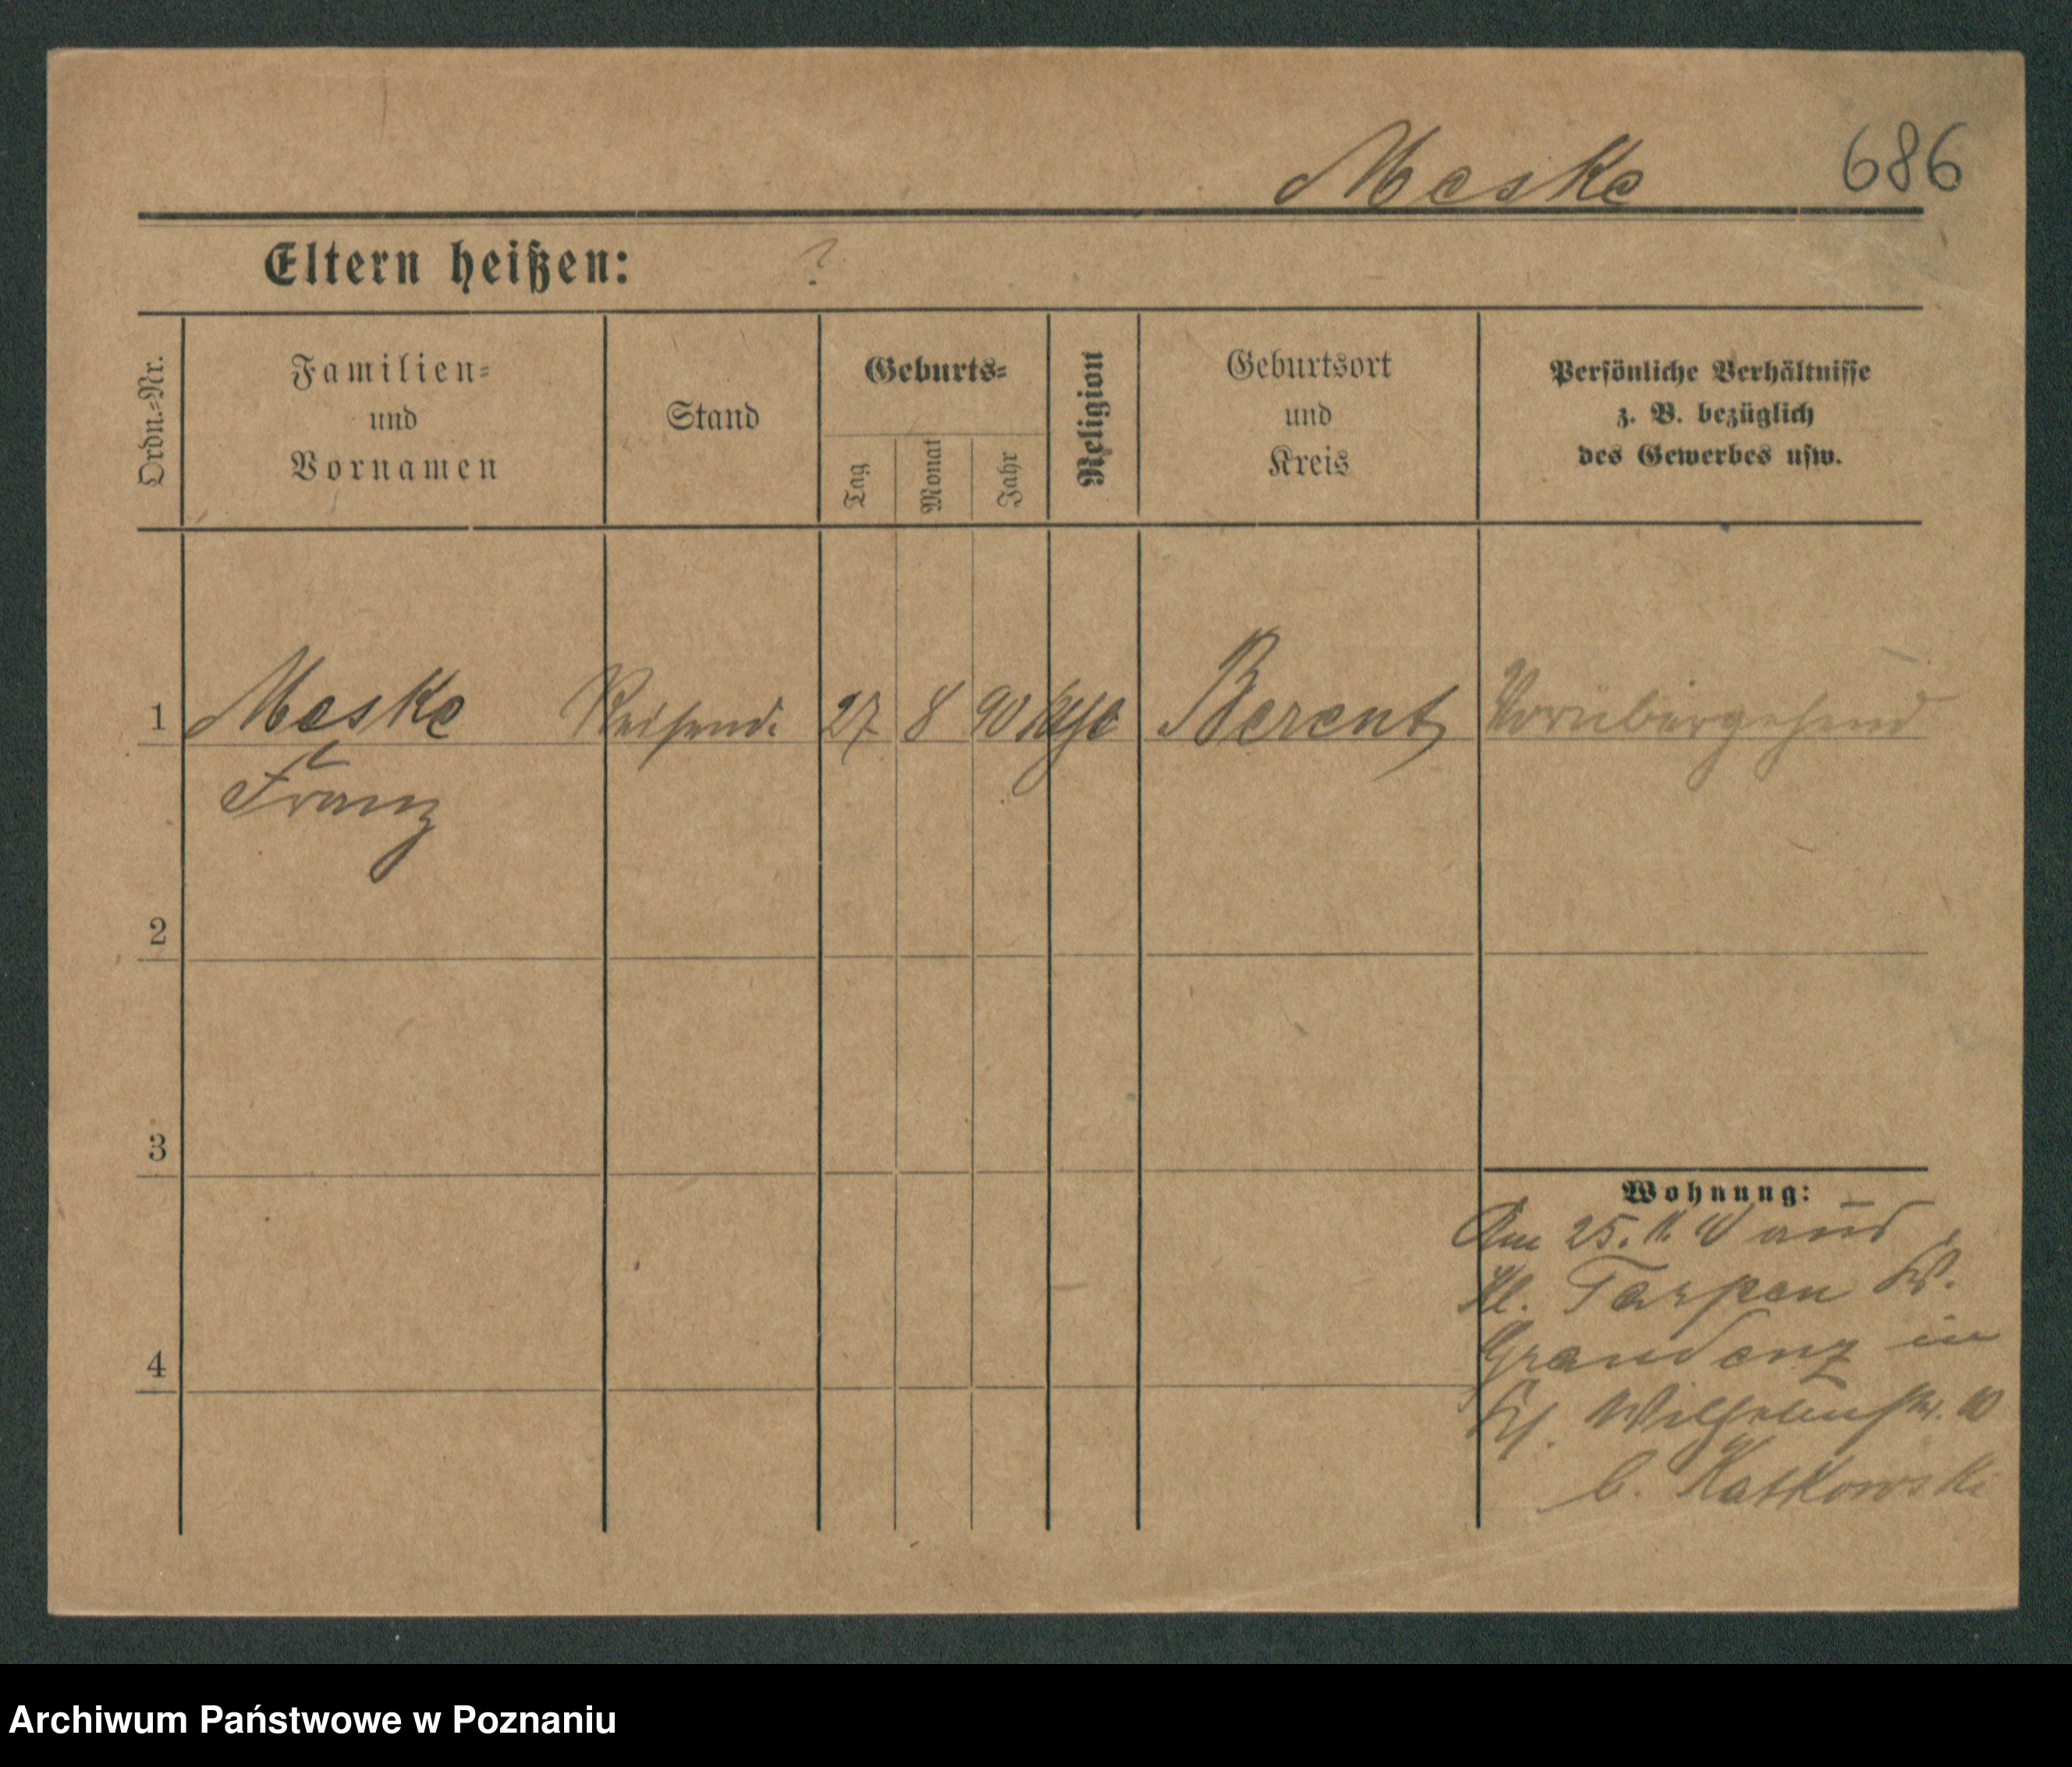 Meske 686
Eltern heißen: ?
Ordn.-Nr.
Familien-
und
Vornamen
Stand
Geburts-
Tag
Monat
Jahr
Religion
Geburtsort
und
Kreis
Persönliche Verhältnisse
z. B. bezüglich
des Gewerbes usw.
1 Meske Reisend. 27 8 90 Berent Vorübergehend
Franz
2
3
4
Wohnung:
Am 25. 11. aus
Kl. Tarpen Kr.
Graudenz in
Wilhelmstr. 10
b. Katkowski
Archiwum Państwowe w Poznaniu